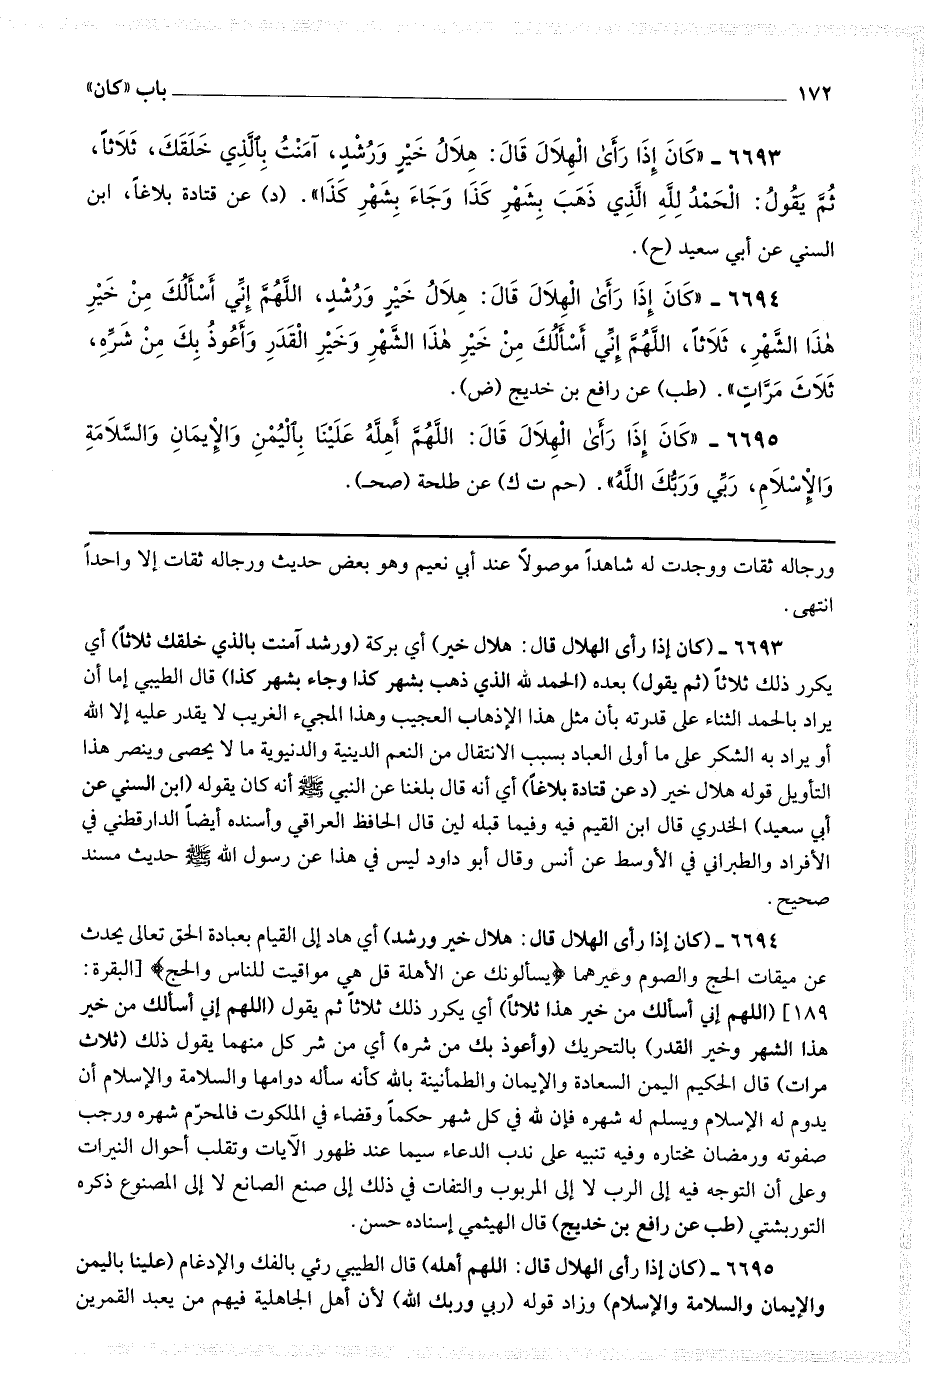 ١٧٢ باب «كان»
٦٦٩٣ ـ «كَانَ إِذَا رَأَىٰ الْهِلَالَ قَالَ: هِلَالُ خَيْرٍ وَرُشْدٍ، آمَنْتُ بِٱلَّذِي خَلَقَكَ، ثَلَاثاً،
ثُمَّ يَقُولُ: الْحَمْدُ لِلَّهِ الَّذِي ذَهَبَ بِشَهْرِ كَذَا وَجَاءَ بِشَهْرِ كَذَا». (د) عن قتادة بلاغاً، ابن
السني عن أبي سعيد (ح).
٦٦٩٤ ـ «كَانَ إِذَا رَأَىٰ الْهِلَالَ قَالَ: هِلَالُ خَيْرٍ وَرُشْدٍ، اللَّهُمَّ إِنِّي أَسْأَلُكَ مِنْ خَيْرِ
هٰذَا الشَّهْرِ، ثَلَاثاً، اللَّهُمَّ إِنِّي أَسْأَلُكَ مِنْ خَيْرِ هٰذَا الشَّهْرِ وَخَيْرِ الْقَدَرِ وَأَعُوذُ بِكَ مِنْ شَرِّهِ،
ثَلَاثَ مَرَّاتٍ». (طب) عن رافع بن خديج (ض).
٦٦٩٥ ـ «كَانَ إِذَا رَأَىٰ الْهِلَالَ قَالَ: اللَّهُمَّ أَهِلَّهُ عَلَيْنَا بِٱلْيُمْنِ وَالْإِيمَانِ وَالسَّلَامَةِ
وَالْإِسْلَامِ، رَبِّي وَرَبُّكَ اللَّهُ». (حم ت ك) عن طلحة (صحـ).
ورجاله ثقات ووجدت له شاهداً موصولاً عند أبي نعيم وهو بعض حديث ورجاله ثقات إلا واحداً
انتهى.
٦٦٩٣ ـ (كان إذا رأى الهلال قال: هلال خير) أي بركة (ورشد آمنت بالذي خلقك ثلاثاً) أي
يكرر ذلك ثلاثاً (ثم يقول) بعده (الحمد لله الذي ذهب بشهر كذا وجاء بشهر كذا) قال الطيبي إما أن
يراد بالحمد الثناء على قدرته بأن مثل هذا الإذهاب العجيب وهذا المجيء الغريب لا يقدر عليه إلا الله
أو يراد به الشكر على ما أولى العباد بسبب الانتقال من النعم الدينية والدنيوية ما لا يحصى وينصر هذا
التأويل قوله هلال خير (د عن قتادة بلاغاً) أي أنه قال بلغنا عن النبي ﷺ أنه كان يقوله (ابن السني عن
أبي سعيد) الخدري قال ابن القيم فيه وفيما قبله لين قال الحافظ العراقي وأسنده أيضاً الدارقطني في
الأفراد والطبراني في الأوسط عن أنس وقال أبو داود ليس في هذا عن رسول الله ﷺ حديث مسند
صحيح.
٦٦٩٤ ـ (كان إذا رأى الهلال قال: هلال خير ورشد) أي هاد إلى القيام بعبادة الحق تعالى يحدث
عن ميقات الحج والصوم وغيرهما ﴿يسألونك عن الأهلة قل هي مواقيت للناس والحج﴾ [البقرة:
١٨٩] (اللهم إني أسألك من خير هذا ثلاثاً) أي يكرر ذلك ثلاثاً ثم يقول (اللهم إني أسألك من خير
هذا الشهر وخير القدر) بالتحريك (وأعوذ بك من شره) أي من شر كل منهما يقول ذلك (ثلاث
مرات) قال الحكيم اليمن السعادة والإيمان والطمأنينة بالله كأنه سأله دوامها والسلامة والإسلام أن
يدوم له الإسلام ويسلم له شهره فإن لله في كل شهر حكماً وقضاء في الملكوت فالمحرّم شهره ورجب
صفوته ورمضان مختاره وفيه تنبيه على ندب الدعاء سيما عند ظهور الآيات وتقلب أحوال النيرات
وعلى أن التوجه فيه إلى الرب لا إلى المربوب والتفات في ذلك إلى صنع الصانع لا إلى المصنوع ذكره
التوربشتي (طب عن رافع بن خديج) قال الهيثمي إسناده حسن.
٦٦٩٥ ـ (كان إذا رأى الهلال قال: اللهم أهله) قال الطيبي رئي بالفك والإدغام (علينا باليمن
والإيمان والسلامة والإسلام) وزاد قوله (ربي وربك الله) لأن أهل الجاهلية فيهم من يعبد القمرين